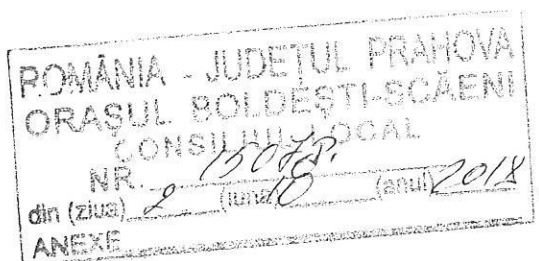 ROMÂNIA - JUDEȚUL PRAHOVA
ORAȘUL BOLDEȘTI-SCĂENI
CONSILIUL LOCAL
NR.
din (ziua) 2 (luna) 10 (anul) 2018
ANEXE